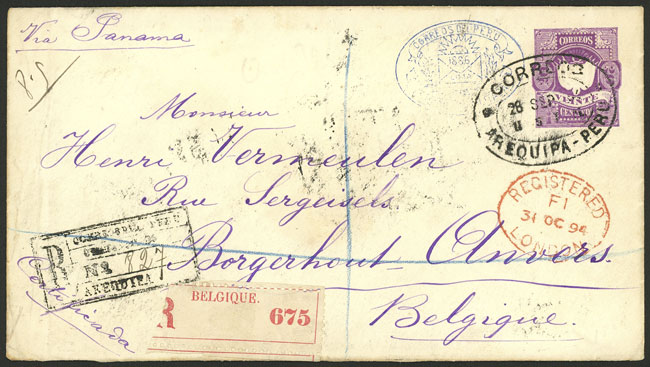 Via Panama
CORREOS DEL PERU
CORREOS
VEINTE
CENTAVOS
CORREOS
28 SEP
AREQUIPA-PERU
Monsieur
Henri Vermeulen
Rue Sergeisels
Borgerhout Anvers.
Belgique.
REGISTERED
F1
31 OC 94
LONDON
CORREOS DEL PERU
R
No
AREQUIPA
Certificada
BELGIQUE.
R 675